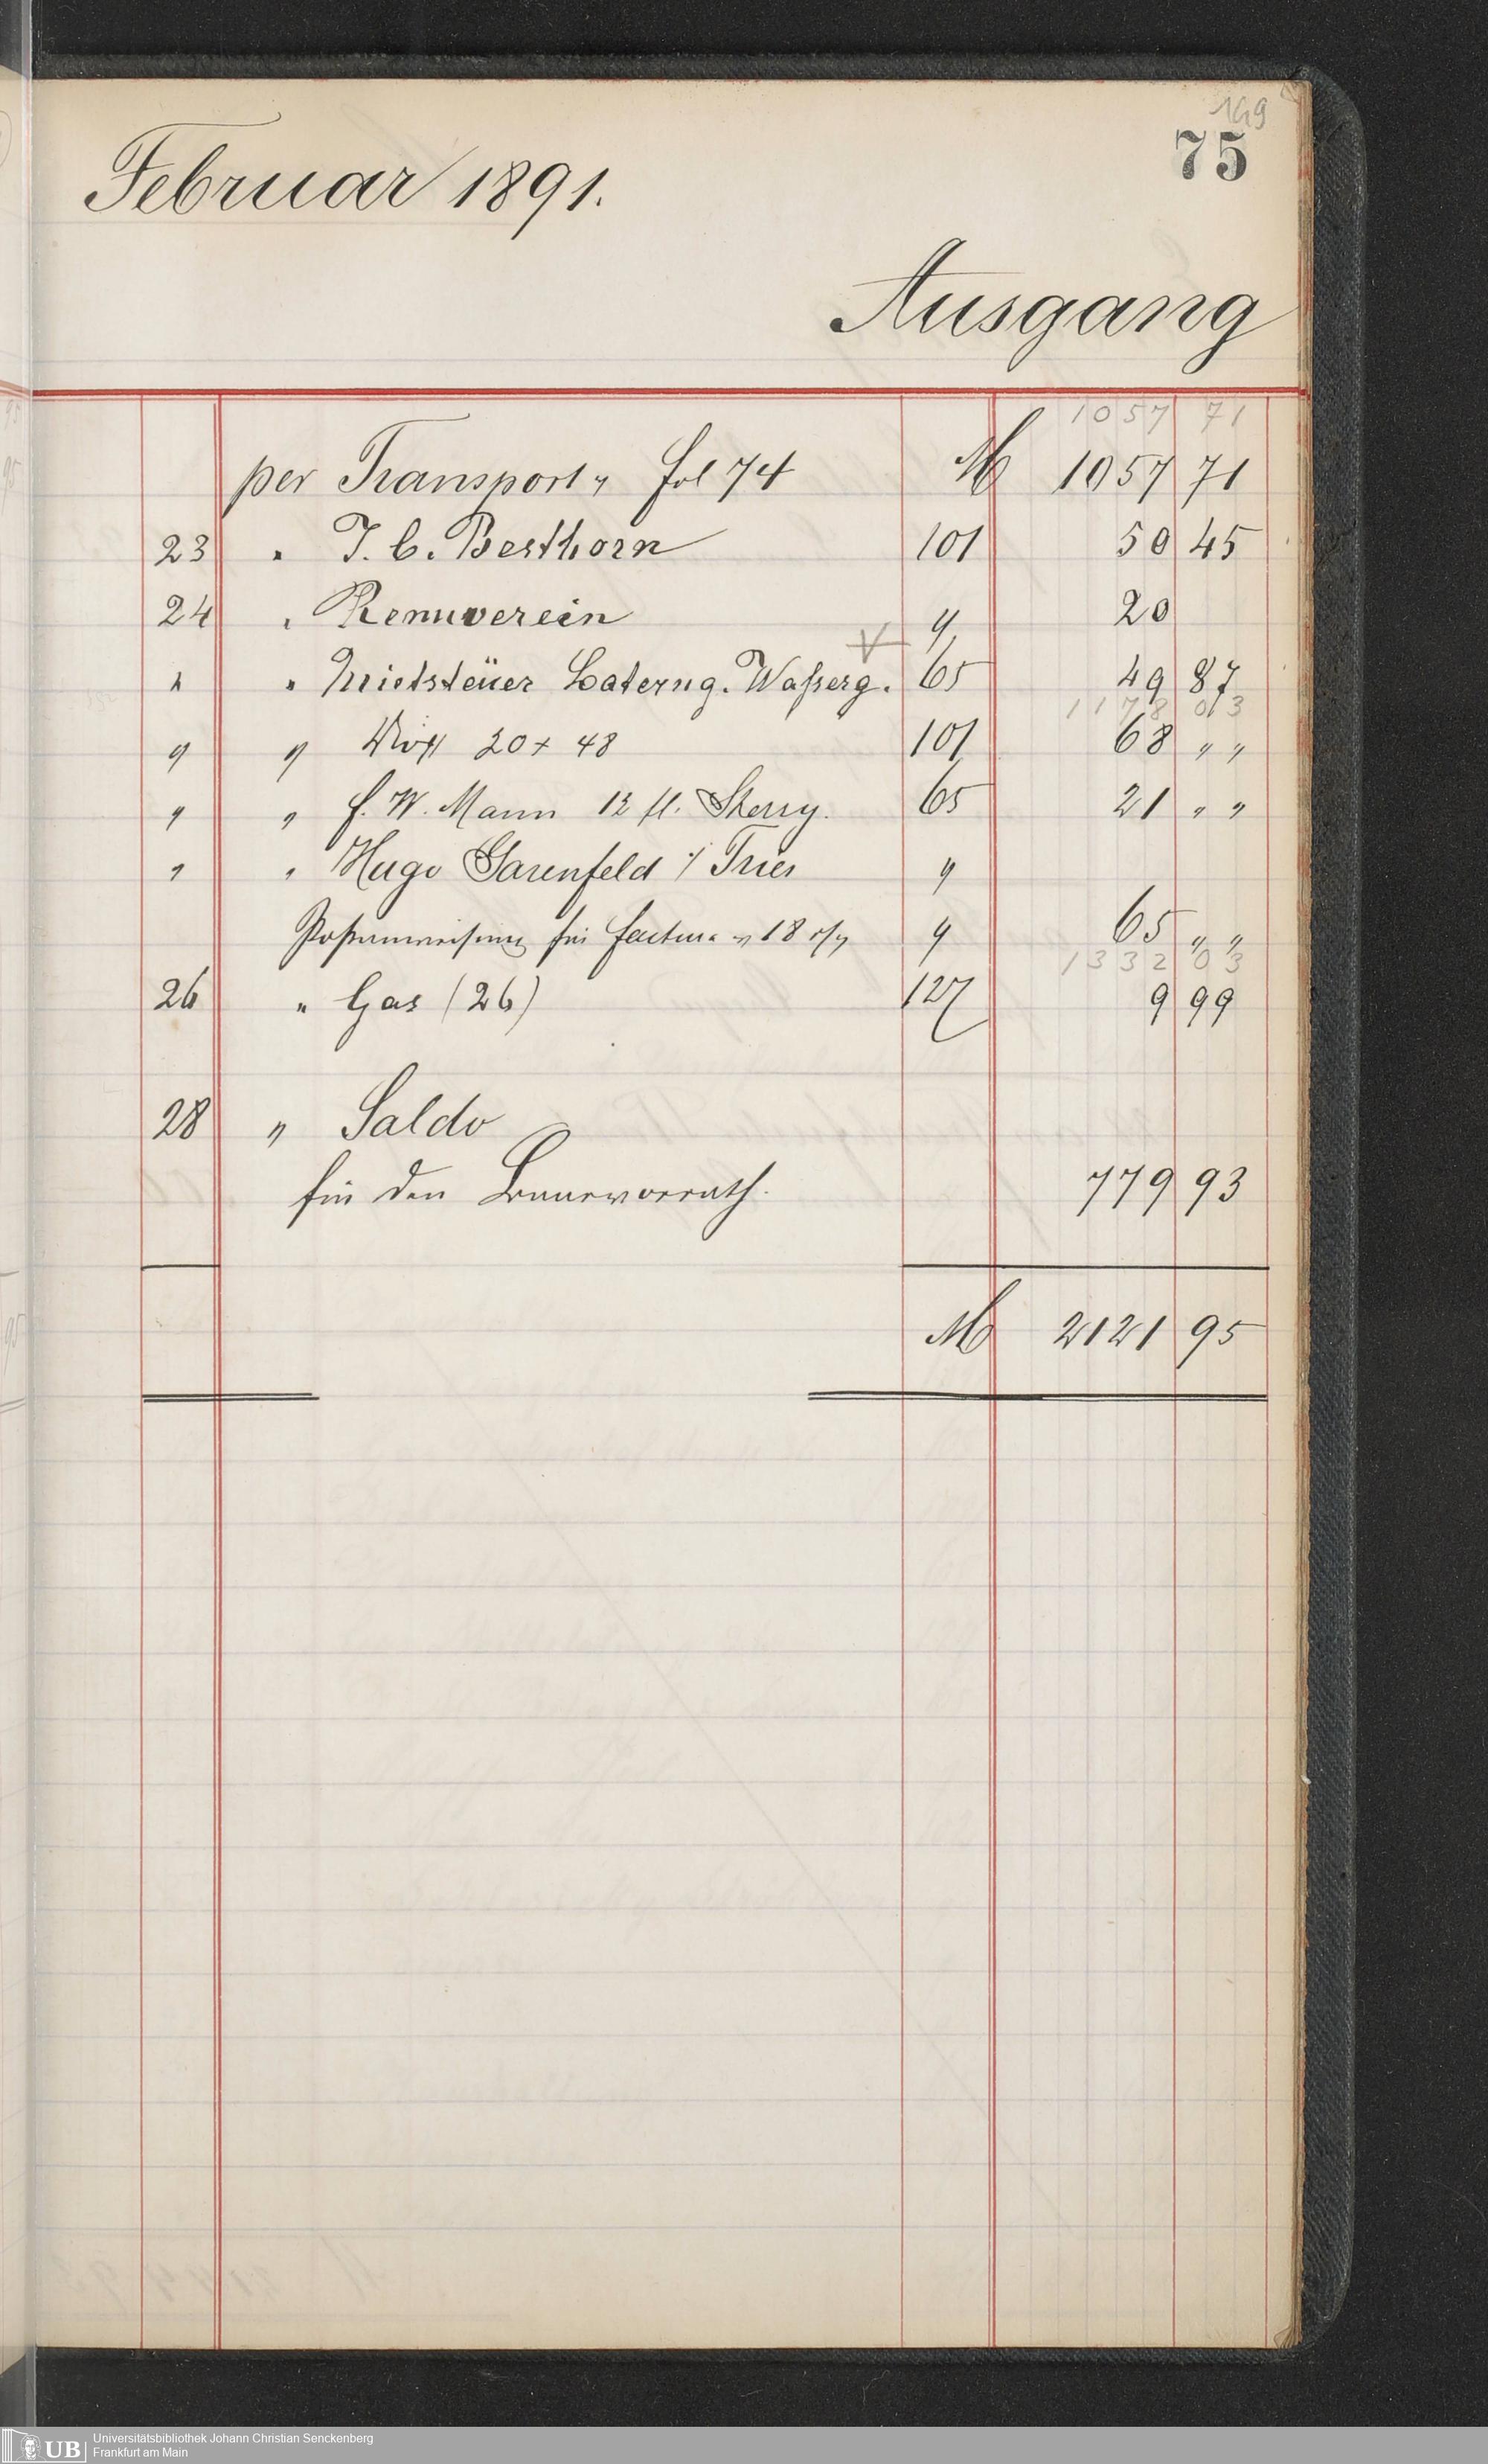 149
75
Februar 1891.
Ausgang
1057 71
per Transport " fol 74 M 1057 71
23 " J. C. Besthorn 101 50 45
24 " Rennverein " 20
V
" " Mietsteüer Laterng. Waßerg. 65 49 87
1178 03
" " 20 + 48 101 68 " "
" " F. W. Mann 12 fl. Sherry. 65 21 " "
" " Hugo Garenfeld / Trier "
Postanweisung für Factura 18 " 65 " "
1332 03
26 " Gas (26) 127 9 99
28 " Saldo
für den Baarvorrath. 779 93
M 2121 95
UB Universitätsbibliothek Johann Christian Senckenberg
Frankfurt am Main